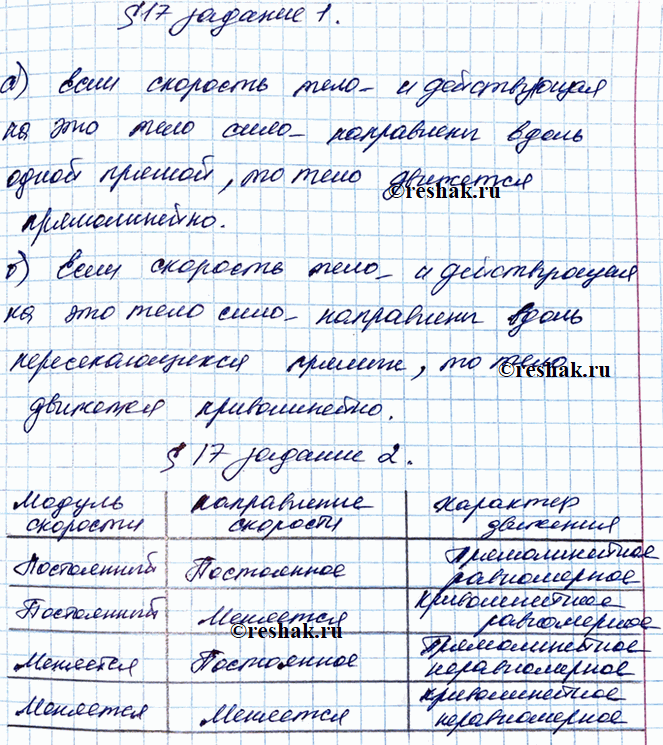 § 17 задание 1.
а) если скорость тела и действующая
на это тело сила направлены вдоль
одной прямой, то тело движется
©reshak.ru
прямолинейно.
б) если скорость тела и действующая
на это тело сила направлены вдоль
пересекающихся прямых, то тело
©reshak.ru
движется криволинейно.
§ 17 задание 2.
Модуль скорости направление скорости характер движения
Постоянный Постоянное Прямолинейное равномерное
Постоянный Меняется криволинейное равномерное
©reshak.ru
Меняется Постоянное Прямолинейное неравномерное
Меняется Меняется криволинейное неравномерное